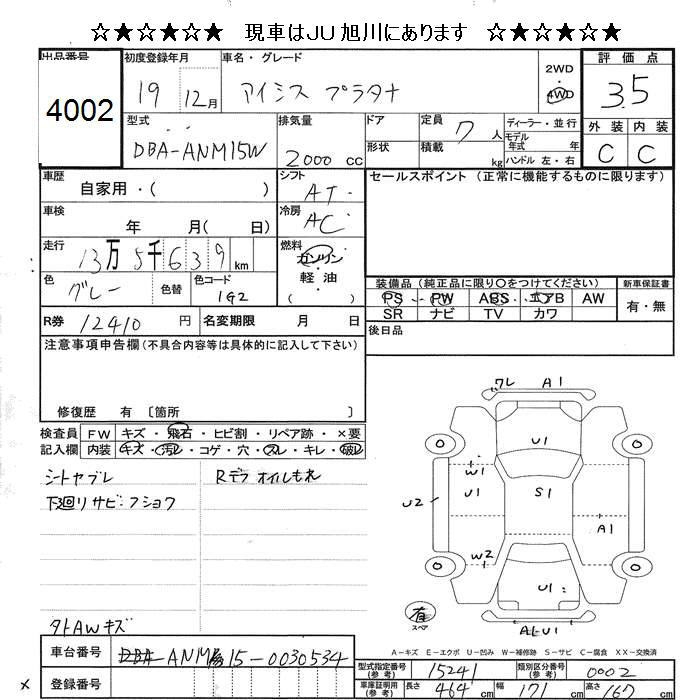 ☆★☆★☆★☆ 現車はJU旭川にあります ☆★☆★☆★☆
出品番号 初度登録年月 車名・グレード 評価点
4002 19 12月 アイシス プラタナ 2WD 4WD 3.5
型式 排気量 ドア 定員 7人 ディーラー・並行 外装 内装
DBA-ANM15W 2000cc 形状 積載 kg モデル年式 年式 ハンドル 左・右 C C
車歴 自家用・( ) シフト AT セールスポイント (正常に機能するものに限ります)
車検 年 月( 日) 冷房 AC
走行 13万5千639km 燃料 ガソリン 軽油 ( )
色 グレー 色替 色コード 1G2
装備品 (純正品に限り○をつけてください) 新車保証書
PS・PW ABS エアB AW 有・無
SR ナビ TV カワ
R券 12410円 名変期限 月 日 後日品
注意事項申告欄 (不具合内容等は具体的に記入して下さい)
修復歴 有 〔箇所 〕
検査員 FW キズ・飛石・ヒビ割・リペア跡・×要
記入欄 内装 キズ・汚レ・コゲ・穴・スレ・キレ・破レ
シートヤブレ Rデフ オイルもれ
下廻りサビ・フショク
外AWキズ
ワレ A1
U1
W1
U1 S1
U2
A1
W2
U1
有 スペア
A1 U1
A-キズ E-エクボ U-凹み W-補修跡 S-サビ C-腐食 XX-交換済
車台番号 ANM15-0030534
登録番号
型式指定番号 (参考) 15241 類別区分番号 (参考) 0002
車庫証明用 (参考) 長さ 464cm 幅 171cm 高さ 167cm
×